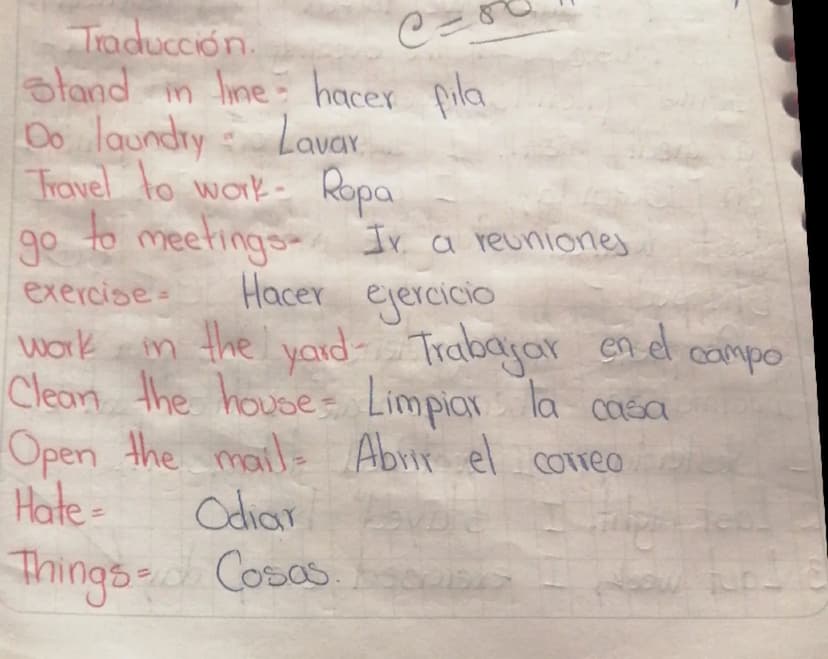 Traducción.
Stand in line = hacer fila
Do laundry = Lavar.
Travel to work - Ropa
go to meetings - Ir a reuniones
exercise = Hacer ejercicio
work in the yard - Trabajar en el campo
Clean the house = Limpiar la casa
Open the mail = Abrir el correo
Hate = Odiar
Things = Cosas.